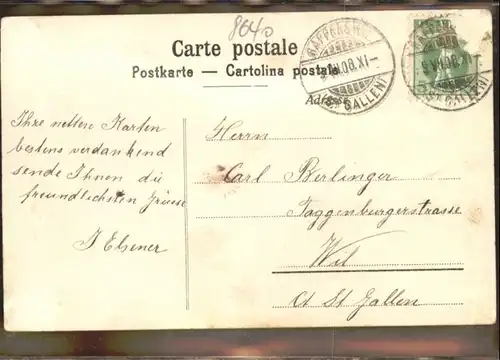 8640
Carte postale
Postkarte — Cartolina postale
Adresse
Ihre nettere Karten
bestens verdankend
sende Ihnen die
freundlichsten Grüsse
J Elsener
Herrn
Carl Berlinger
Toggenburgerstrasse
Wil
Ct St Gallen